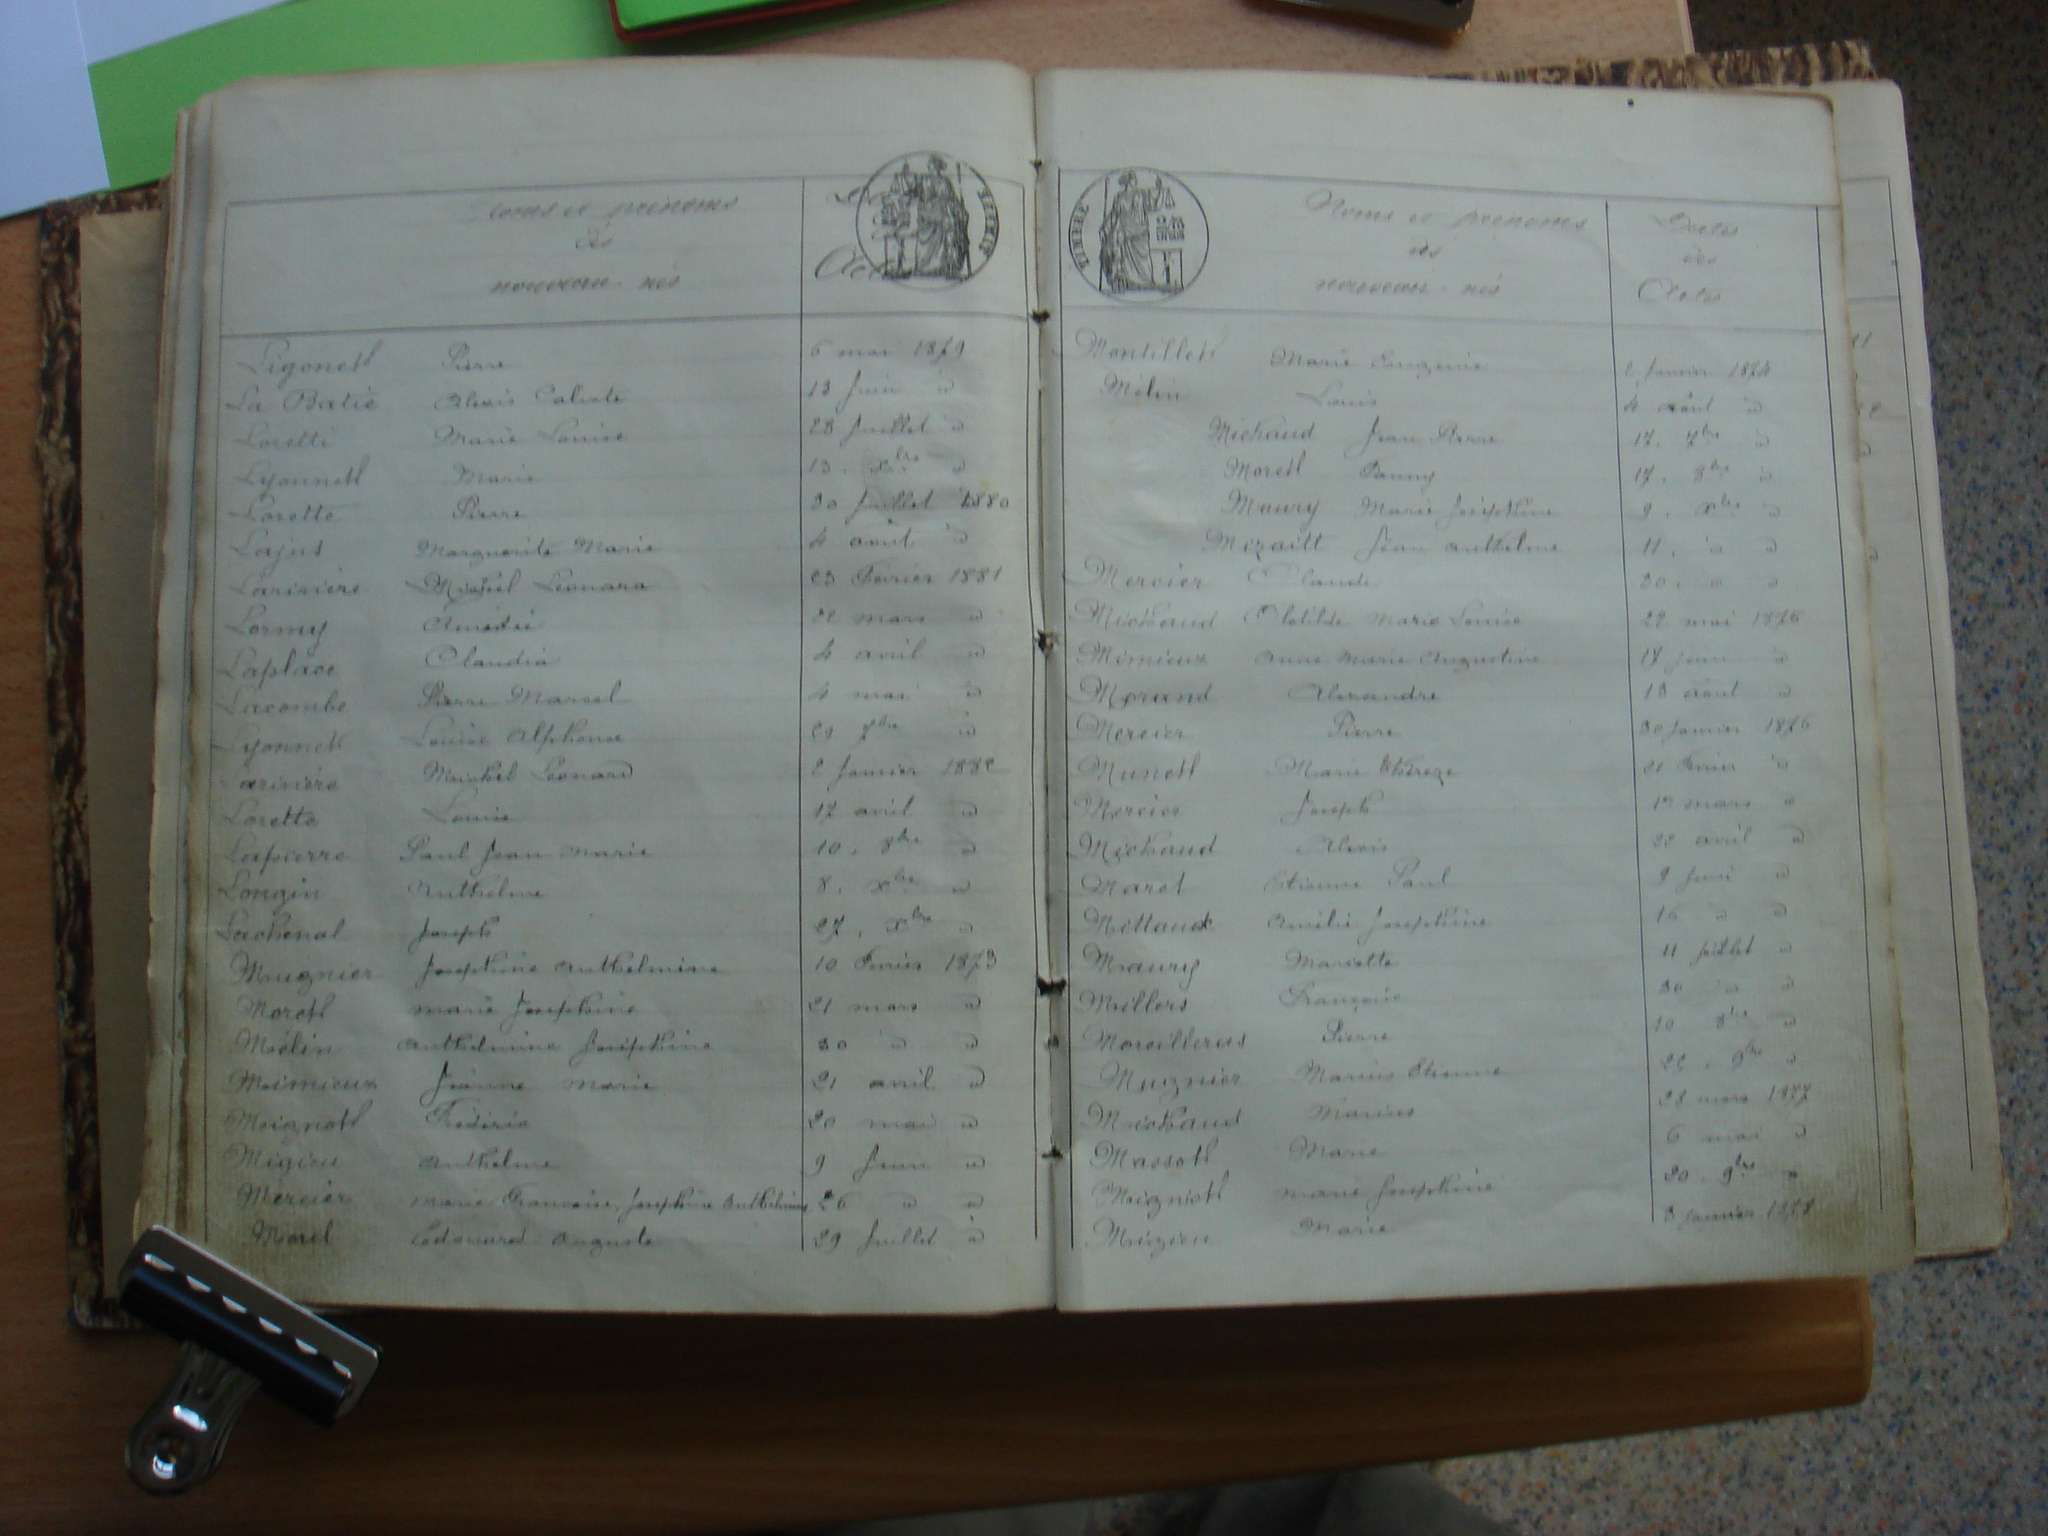 Noms et prénoms
des
nouveau-nés
Actes
Ligonett Pierre 6 mai 1879
La Batie Alexis Calixte 13 Juin id
Loretti Marie Louise 28 Juillet id
Lyonnett Marie 13. Xbre id
Lorette Pierre 30 Juillet 1880
Lajus Marguerite Marie 4 août id
Larivière Michel Léonard 23 Février 1881
Lormy Amédée 22 mars id
Laplace Claudia 4 avril id
Lacombe Pierre Marcel 4 mai id
Lyonnett Louise Alphonse 21 7bre id
Larivière Michel Léonard 2 Janvier 1882
Lorette Louise 17 avril id
Lapierre Paul Jean Marie 10. 8bre id
Longin Anthelme 8. Xbre id
Lachenal Joseph 27. Xbre id
Mugnier Josephine Anthelmine 10 Février 1873
Morett marie Josephine 21 mars id
Mélin Anthelmine Josephine 30 id id
Mimieux Jeanne Marie 21 avril id
Moignott Fréderic 20 mai id
Migieu Anthelme 9 Juin id
Mercier Marie Françoise Josephine Anthelmine 26 id id
Morel Edouard Auguste 29 Juillet id
TIMBRE
Noms et prénoms
des
nouveau-nés
Dates
des
Actes
Montillett Marie Eugenie 2 Janvier 1874
Mélin Louis 4 août id
Michaud Jean Pierre 17. 7bre id
Morett Fanny 17. 8bre id
Maury Marie Josephine 9. Xbre id
Mizaitt Jean Anthelme 11. id id
Mercier Claude 20. id id
Michaud Clotilde Marie Louise 22 mai 1875
Mimieux Anne Marie Augustine 17 Juin id
Morand Alexandre 18 août id
Mercier Pierre 30 Janvier 1876
Munett Marie Thérèze 21 Février id
Mercier Joseph 1er mars id
Michaud Alexis 22 avril id
Maret Etienne Paul 9 Juin id
Mittaux Amélie Josephine 16 id id
Maury Mariette 11 Juillet id
Millers Françoise 30 id id
Pierre 10 8bre id
Mugnier Marius Etienne 22. 9bre id
Michaud Marius 28 mars 1877
Massott Marie 6 mai id
Moigniott Marie Josephine 20. 9bre id
Migieu Marie 3 Janvier 1878